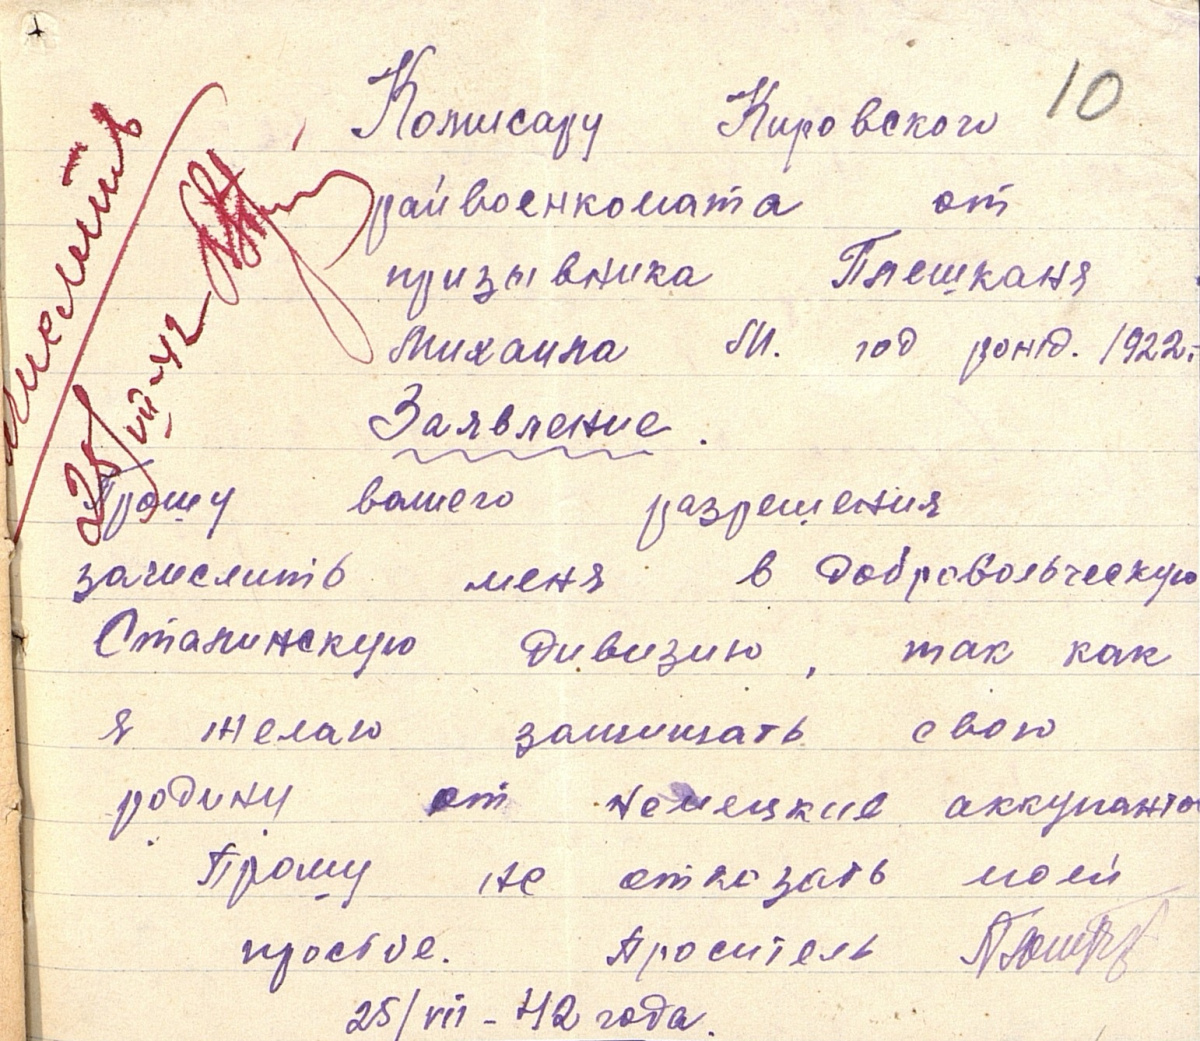 10
Комисару Кировского
райвоенкомата от
призывника Плешканя
Михаила М. год рожд. 1922г
Заявление.
Прошу вашего разрешения
зачислить меня в добровольческую
Сталинскую дивизию, так как
я желаю защищать свою
родину от немецкие аккупанто
Прошу не отказать моей
просбые. Проситель
25/VII-42 года.
25/VII-42